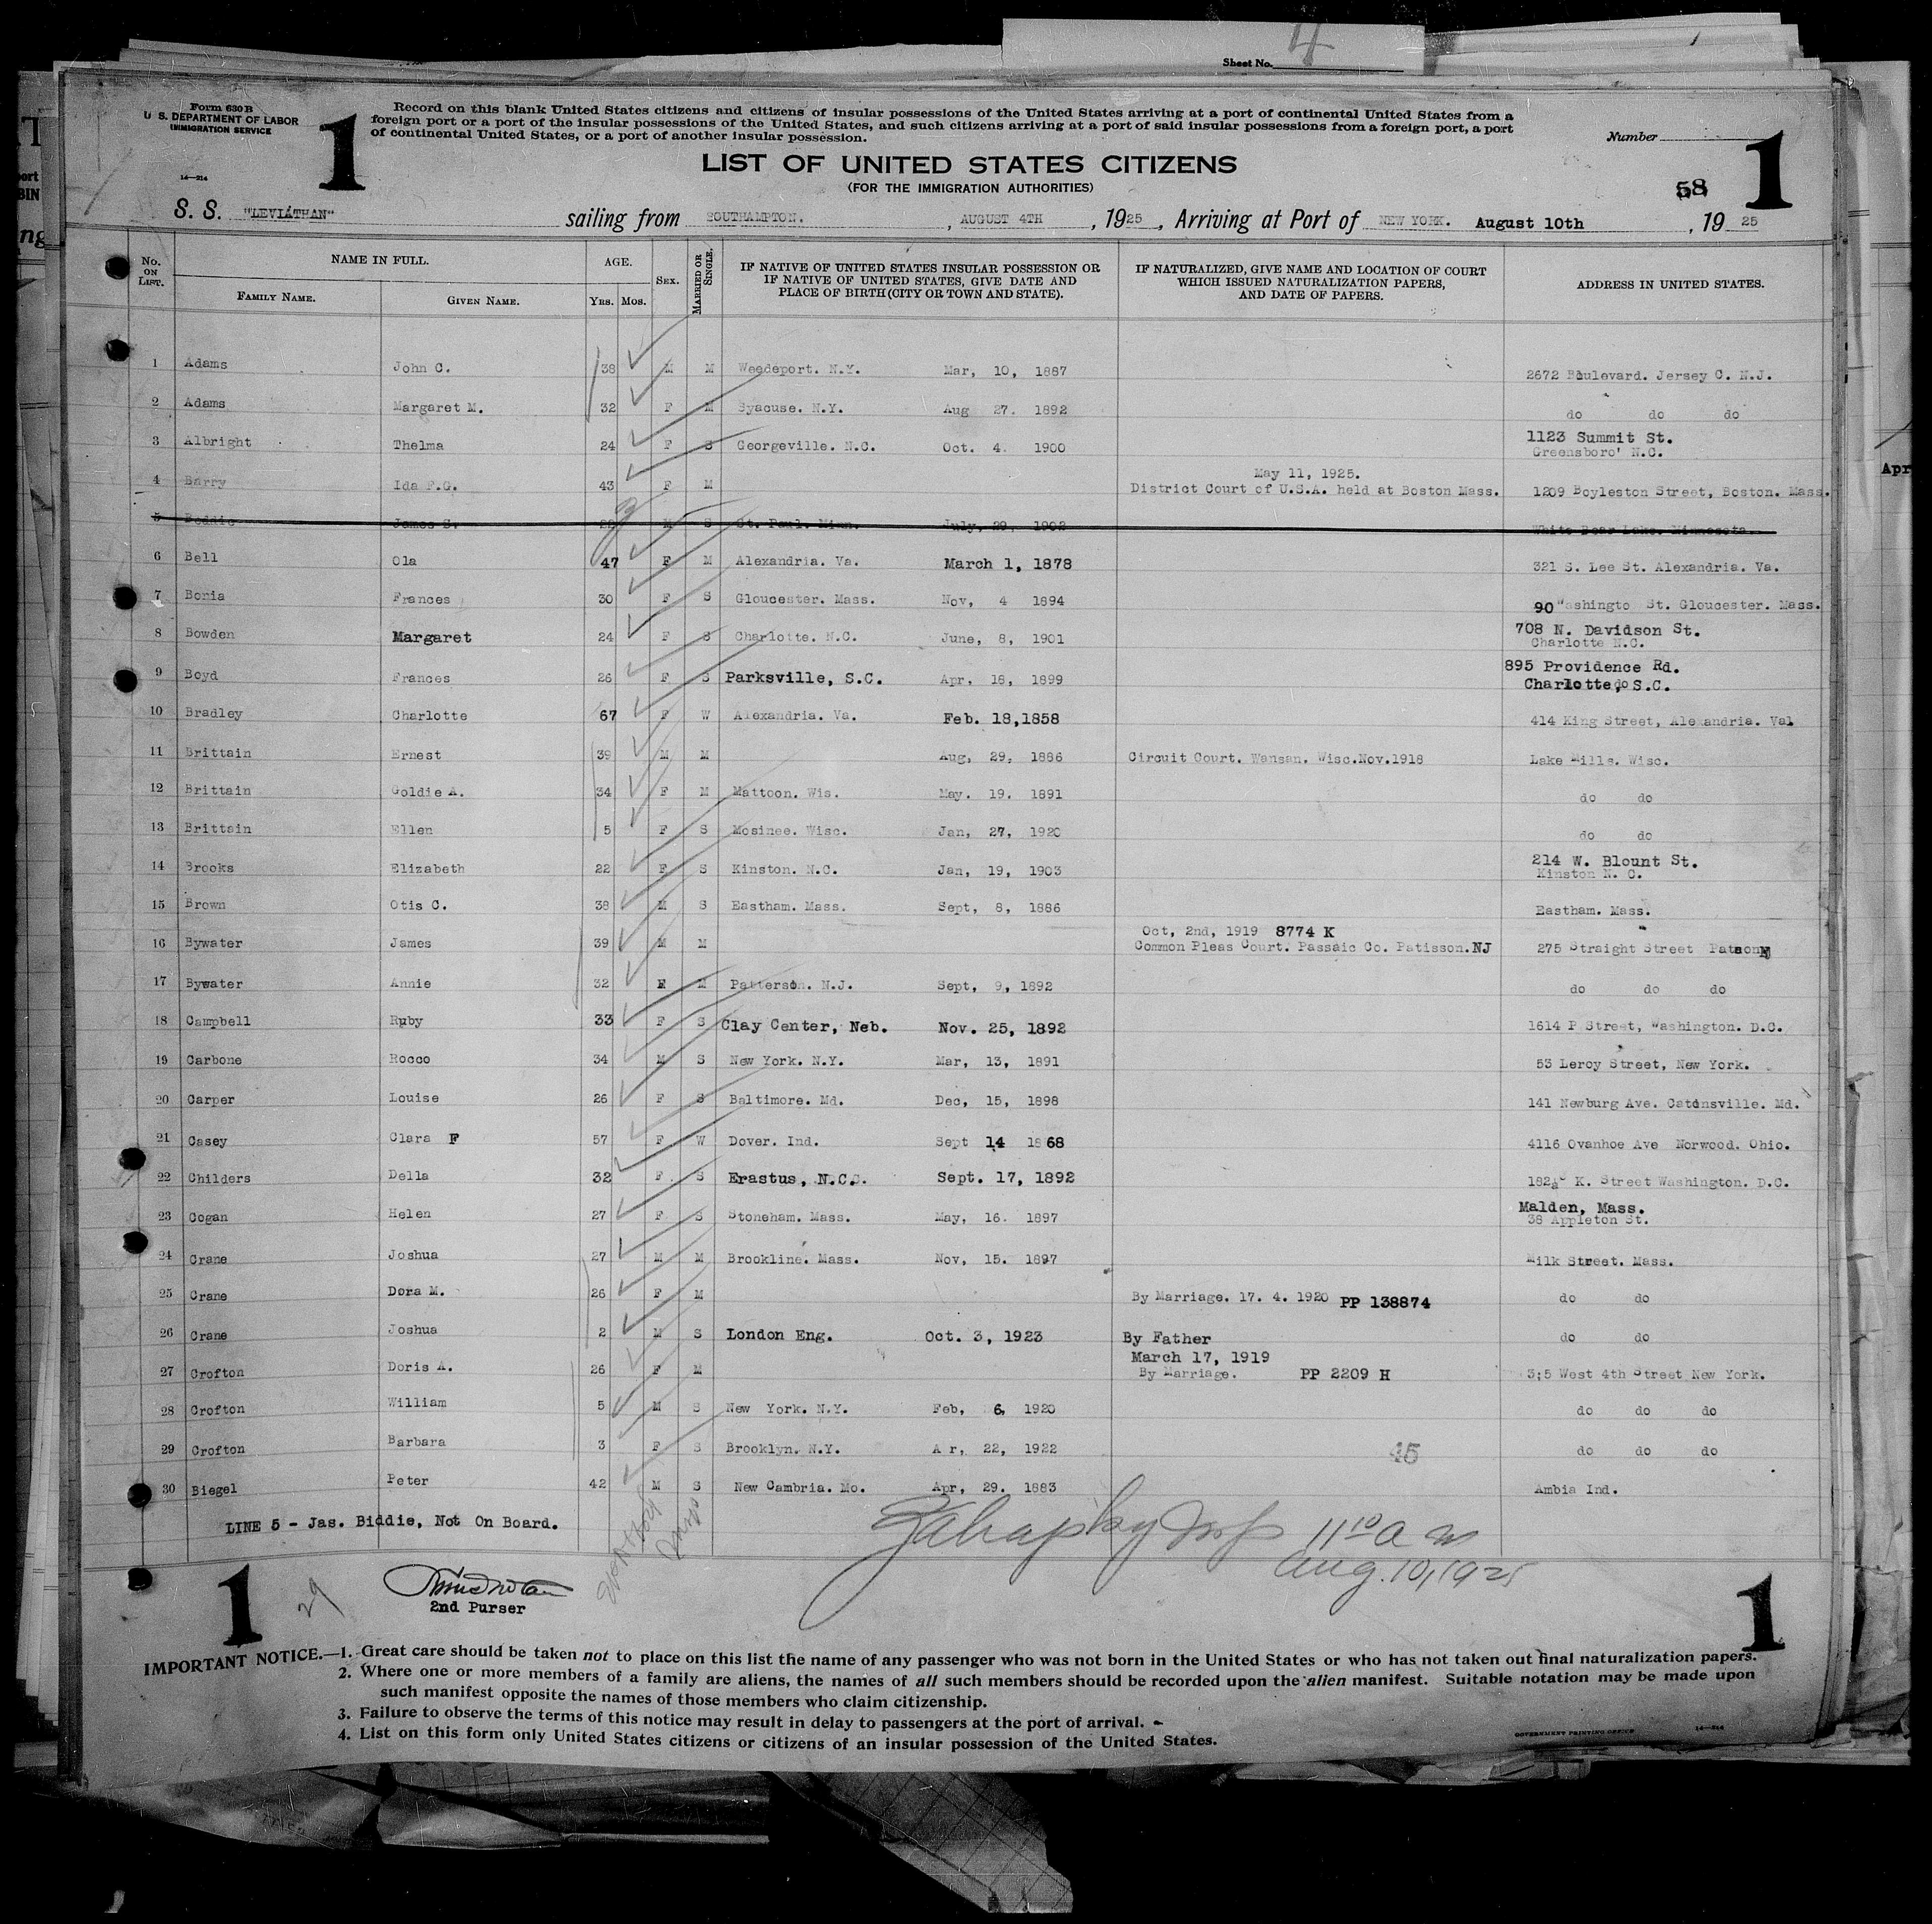 4
Sheet No.
Form 630 B
U. S. DEPARTMENT OF LABOR
IMMIGRATION SERVICE
14—214
1
Record on this blank United States citizens and citizens of insular possessions of the United States arriving at a port of continental United States from a
foreign port or a port of the insular possessions of the United States, and such citizens arriving at a port of said insular possessions from a foreign port, a port
of continental United States, or a port of another insular possession.
Number
1
LIST OF UNITED STATES CITIZENS
(FOR THE IMMIGRATION AUTHORITIES)
58
S. S. "LEVIATHAN" sailing from SOUTHAMPTON. , AUGUST 4TH , 1925 , Arriving at Port of NEW YORK. August 10th , 19 25
No. ON LIST. NAME IN FULL. AGE. SEX. MARRIED OR SINGLE. IF NATIVE OF UNITED STATES INSULAR POSSESSION OR IF NATIVE OF UNITED STATES, GIVE DATE AND PLACE OF BIRTH (CITY OR TOWN AND STATE). IF NATURALIZED, GIVE NAME AND LOCATION OF COURT WHICH ISSUED NATURALIZATION PAPERS, AND DATE OF PAPERS. ADDRESS IN UNITED STATES.
FAMILY NAME. GIVEN NAME. YRS. MOS.
1 Adams John C. 38 M M Weedeport. N.Y. Mar, 10, 1887 2672 Boulevard. Jersey C. N.J.
2 Adams Margaret M. 32 F M Syacuse. N.Y. Aug 27. 1892 do do do
3 Albright Thelma 24 F S Georgeville. N.C. Oct. 4. 1900 1123 Summit St.
Greensboro' N.C.
May 11, 1925.
4 Barry Ida F.G. 43 F M District Court of U.S.A. held at Boston Mass. 1209 Boyleston Street, Boston. Mass.
5 Beddie James S. 22 M S St. Paul. Minn. July, 29, 1902 White Bear Lake. Minnesota
6 Bell Ola 47 F M Alexandria. Va. March 1, 1878 321 S. Lee St. Alexandria. Va.
7 Boria Frances 30 F S Gloucester. Mass. Nov, 4 1894 90 Washingto St. Gloucester. Mass.
8 Bowden Margaret 24 F S Charlotte. N.C. June, 8, 1901 708 N. Davidson St.
Charlotte N.C.
895 Providence Rd.
9 Boyd Frances 26 F S Parksville, S.C. Apr, 18, 1899 Charlotte, S.C.
10 Bradley Charlotte 67 F W Alexandria. Va. Feb. 18,1858 414 King Street, Alexandria. Va
11 Brittain Ernest 39 M M Aug, 29, 1886 Circuit Court. Wansan. Wisc.Nov.1918 Lake Mills. Wisc.
12 Brittain Goldie A. 34 F M Mattoon. Wis. May. 19. 1891 do do
13 Brittain Ellen 5 F S Mosinee. Wisc. Jan, 27, 1920 do do
14 Brooks Elizabeth 22 F S Kinston. N.C. Jan, 19, 1903 214 W. Blount St.
Kinston N. C.
15 Brown Otis C. 38 M S Eastham. Mass. Sept, 8, 1886 Eastham. Mass.
Oct, 2nd, 1919 8774 K
16 Bywater James 39 M M Common Pleas Court. Passaic Co. Patisson.NJ 275 Straight Street
17 Bywater Annie 32 F M Patterson. N.J. Sept, 9, 1892 do do do
18 Campbell Ruby 33 F S Clay Center, Neb. Nov. 25, 1892 1614 P Street, Washington. D.C.
19 Carbone Rocco 34 M S New York. N.Y. Mar, 13, 1891 53 Leroy Street, New York.
20 Carper Louise 26 F S Baltimore. Md. Dec, 15, 1898 141 Newburg Ave. Catonsville. Md.
21 Casey Clara F 57 F W Dover. Ind. Sept 14 1868 4116 Ovanhoe Ave Norwood. Ohio.
22 Childers Della 32 F. S Erastus, N.C. Sept. 17, 1892 K. Street Washington. D.C.
23 Cogan Helen 27 F S Stoneham. Mass. May, 16. 1897 Malden, Mass.
38 Appleton St.
24 Crane Joshua 27 M M Brookline. Mass. Nov, 15. 1897 Milk Street. Mass.
25 Crane Dora M. 26 F M By Marriage. 17. 4. 1920 PP 138874 do do
26 Crane Joshua 2 M S London Eng. Oct. 3, 1923 By Father do do
March 17, 1919
27 Crofton Doris A. 26 F M By Marriage. PP 2209 H 3;5 West 4th Street New York.
28 Crofton William 5 M S New York. N.Y. Feb, 6, 1920 do do do
29 Crofton Barbara 3 F S Brooklyn. N.Y. A r, 22, 1922 do do do
45
30 Biegel Peter 42 M S New Cambria. Mo. Apr, 29. 1883 Ambia Ind.
LINE 5 - Jas. Biddie, Not On Board.
11 10 a m
Aug. 10, 1925
1
29
2nd Purser
1
IMPORTANT NOTICE.—1. Great care should be taken not to place on this list the name of any passenger who was not born in the United States or who has not taken out final naturalization papers.
2. Where one or more members of a family are aliens, the names of all such members should be recorded upon the alien manifest. Suitable notation may be made upon
such manifest opposite the names of those members who claim citizenship.
3. Failure to observe the terms of this notice may result in delay to passengers at the port of arrival.
4. List on this form only United States citizens or citizens of an insular possession of the United States.
GOVERNMENT PRINTING OFFICE 14—214
Apr